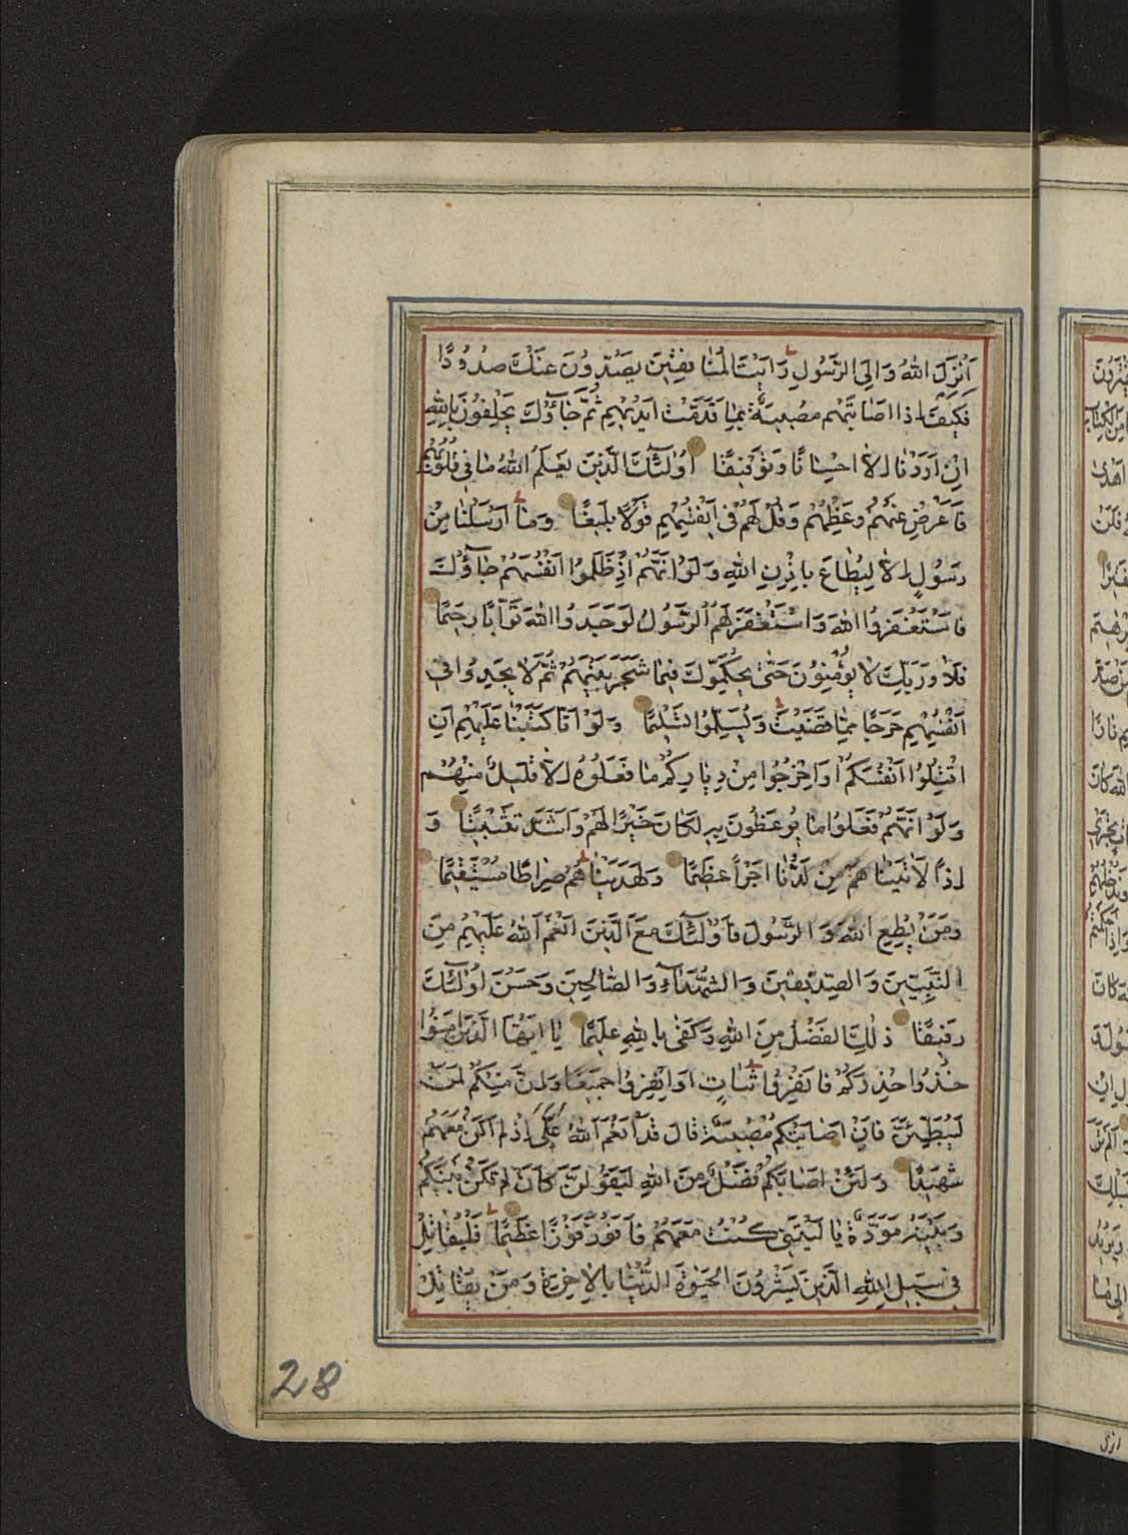 اَنْزَلَ اللهُ وَاِلَى الرَّسُولِ رَاَيْتَ الْمُنَافِقِينَ يَصُدُّونَ عَنْكَ صُدُودًا
فَكَيْفَ اِذَا اَصَابَتْهُمْ مُصِيبَةٌ بِمَا قَدَّمَتْ اَيْدِيهِمْ ثُمَّ جَآؤُكَ يَحْلِفُونَ بِاللهِ
اِنْ اَرَدْنَا اِلَّا اِحْسَانًا وَتَوْفِيقًا اُولٰٓئِكَ الَّذِينَ يَعْلَمُ اللهُ مَا فِي قُلُوبِهِمْ
فَاَعْرِضْ عَنْهُمْ وَعِظْهُمْ وَقُلْ لَهُمْ فِي اَنْفُسِهِمْ قَوْلًا بَلِيغًا وَمَا اَرْسَلْنَا مِنْ
رَسُولٍ اِلَّا لِيُطَاعَ بِاِذْنِ اللهِ وَلَوْ اَنَّهُمْ اِذْ ظَلَمُوا اَنْفُسَهُمْ جَآؤُكَ
فَاسْتَغْفَرُوا اللهَ وَاسْتَغْفَرَ لَهُمُ الرَّسُولُ لَوَجَدُوا اللهَ تَوَّابًا رَحِيمًا
فَلَا وَرَبِّكَ لَا يُؤْمِنُونَ حَتّٰى يُحَكِّمُوكَ فِيمَا شَجَرَ بَيْنَهُمْ ثُمَّ لَا يَجِدُوا فِي
اَنْفُسِهِمْ حَرَجًا مِمَّا قَضَيْتَ وَيُسَلِّمُوا تَسْلِيمًا وَلَوْ اَنَّا كَتَبْنَا عَلَيْهِمْ اَنِ
اقْتُلُوا اَنْفُسَكُمْ اَوِ اخْرُجُوا مِنْ دِيَارِكُمْ مَا فَعَلُوهُ اِلَّا قَلِيلٌ مِنْهُمْ
وَلَوْ اَنَّهُمْ فَعَلُوا مَا يُوعَظُونَ بِهِ لَكَانَ خَيْرًا لَهُمْ وَاَشَدَّ تَثْبِيتًا وَ
اِذًا لَاٰتَيْنَاهُمْ مِنْ لَدُنَّا اَجْرًا عَظِيمًا وَلَهَدَيْنَاهُمْ صِرَاطًا مُسْتَقِيمًا
وَمَنْ يُطِعِ اللهَ وَالرَّسُولَ فَاُولٰٓئِكَ مَعَ الَّذِينَ اَنْعَمَ اللهُ عَلَيْهِمْ مِنَ
النَّبِيِّينَ وَالصِّدِّيقِينَ وَالشُّهَدَآءِ وَالصَّالِحِينَ وَحَسُنَ اُولٰٓئِكَ
رَفِيقًا ذٰلِكَ الْفَضْلُ مِنَ اللهِ وَكَفٰى بِاللهِ عَلِيمًا يَا اَيُّهَا الَّذِينَ اٰمَنُوا
خُذُوا حِذْرَكُمْ فَانْفِرُوا ثُبَاتٍ اَوِ انْفِرُوا جَمِيعًا وَاِنَّ مِنْكُمْ لَمَنْ
لَيُبَطِّئَنَّ فَاِنْ اَصَابَتْكُمْ مُصِيبَةٌ قَالَ قَدْ اَنْعَمَ اللهُ عَلَيَّ اِذْ لَمْ اَكُنْ مَعَهُمْ
شَهِيدًا وَلَئِنْ اَصَابَكُمْ فَضْلٌ مِنَ اللهِ لَيَقُولَنَّ كَاَنْ لَمْ تَكُنْ بَيْنَكُمْ
وَبَيْنَهُ مَوَدَّةٌ يَا لَيْتَنِي كُنْتُ مَعَهُمْ فَاَفُوزَ فَوْزًا عَظِيمًا فَلْيُقَاتِلْ
فِي سَبِيلِ اللهِ الَّذِينَ يَشْرُونَ الْحَيٰوةَ الدُّنْيَا بِالْاٰخِرَةِ وَمَنْ يُقَاتِلْ
28